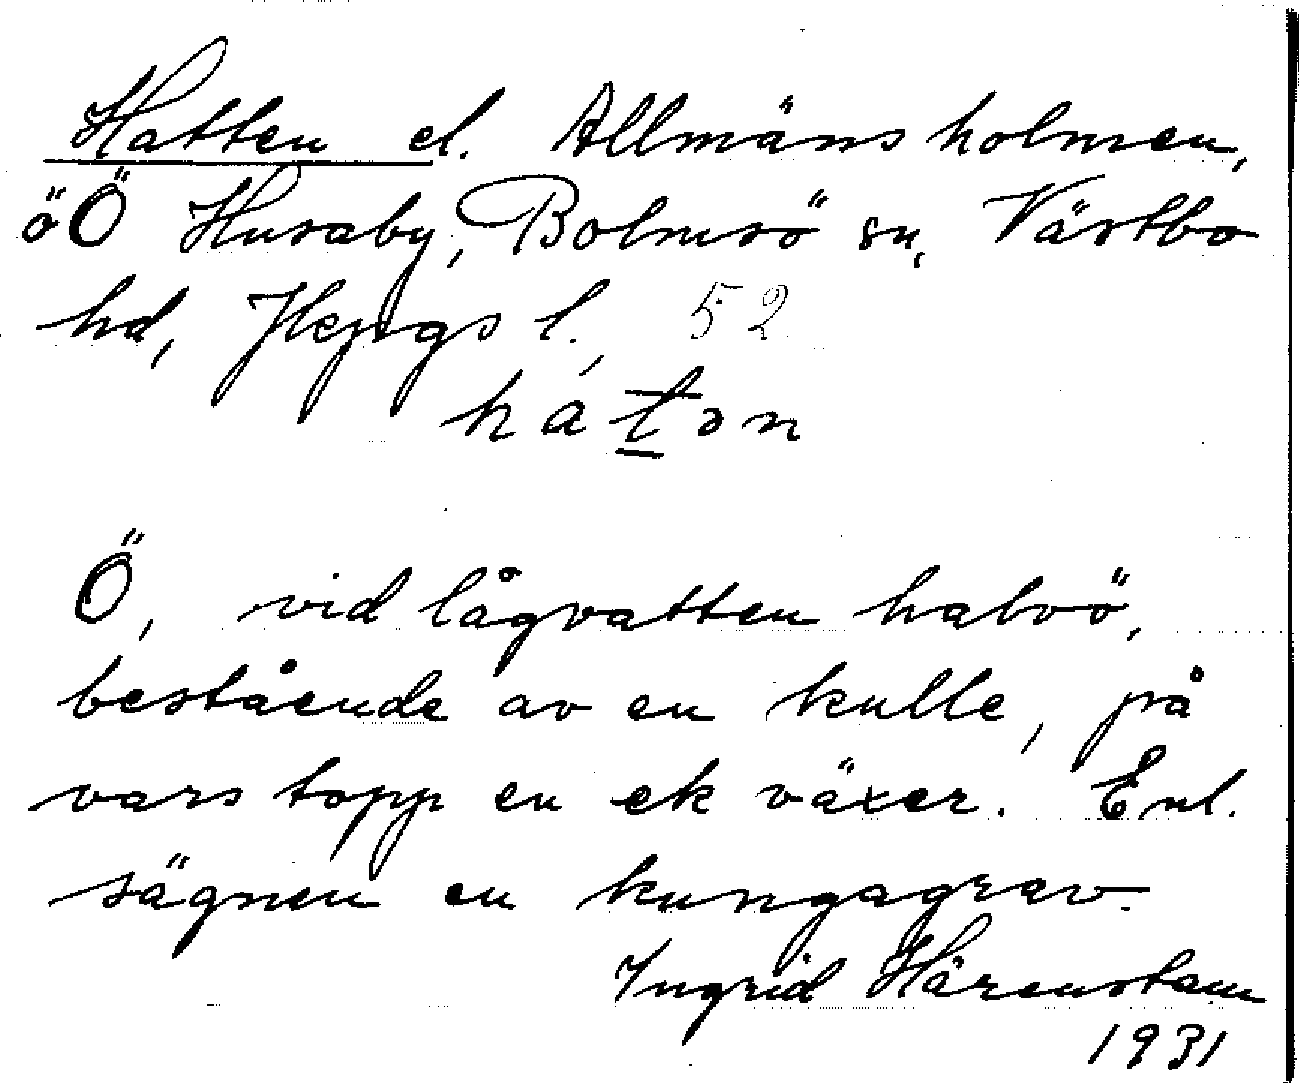 Hatten el. Allmäns holmen,
ö Ö Husaby, Bolmsö sn, Västbo
hd, Jkpgs l. 52
hátən
Ö, vid lågvatten halvö,
bestående av en kulle, på
vars topp en ek växer. Enl.
sägnen en kungagrav.
Ingrid Härenstam
1931